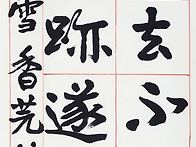 去不
跡遂
雪香